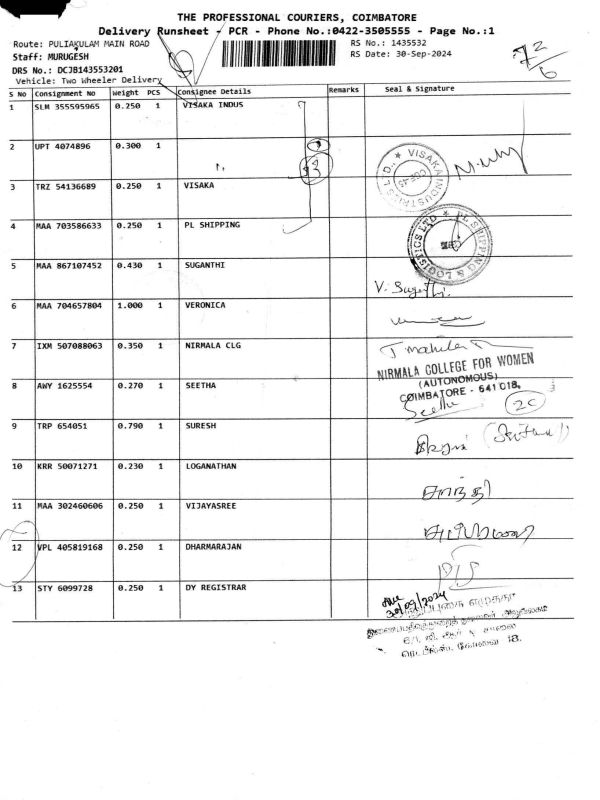 THE PROFESSIONAL COURIERS, COIMBATORE
Delivery Runsheet - PCR - Phone No.:0422-3505555 - Page No.:1
Route: PULIAKULAM MAIN ROAD
RS No.: 1435532
Staff: MURUGESH
RS Date: 30-Sep-2024
DRS No.: DCJB143553201
Vehicle: Two Wheeler Delivery
72/6
S No Consignment No Weight PCS Consignee Details Remarks Seal & Signature
1 SLM 355595965 0.250 1 VISAKA INDUS
2 UPT 4074896 0.300 1
VISAKA INDUSTRIES LTD.,
3 TRZ 54136689 0.250 1 VISAKA
4 MAA 703586633 0.250 1 PL SHIPPING
PL SHIPPING & LOGISTICS LTD
5 MAA 867107452 0.430 1 SUGANTHI
6 MAA 704657804 1.000 1 VERONICA
7 IXM 507088063 0.350 1 NIRMALA CLG
NIRMALA COLLEGE FOR WOMEN
(AUTONOMOUS)
COIMBATORE - 641 018.
8 AWY 1625554 0.270 1 SEETHA
Seetha
20
9 TRP 654051 0.790 1 SURESH
10 KRR 50071271 0.230 1 LOGANATHAN
சாந்தி
11 MAA 302460606 0.250 1 VIJAYASREE
12 VPL 405819168 0.250 1 DHARMARAJAN
13 STY 6099728 0.250 1 DY REGISTRAR
30/09/2024